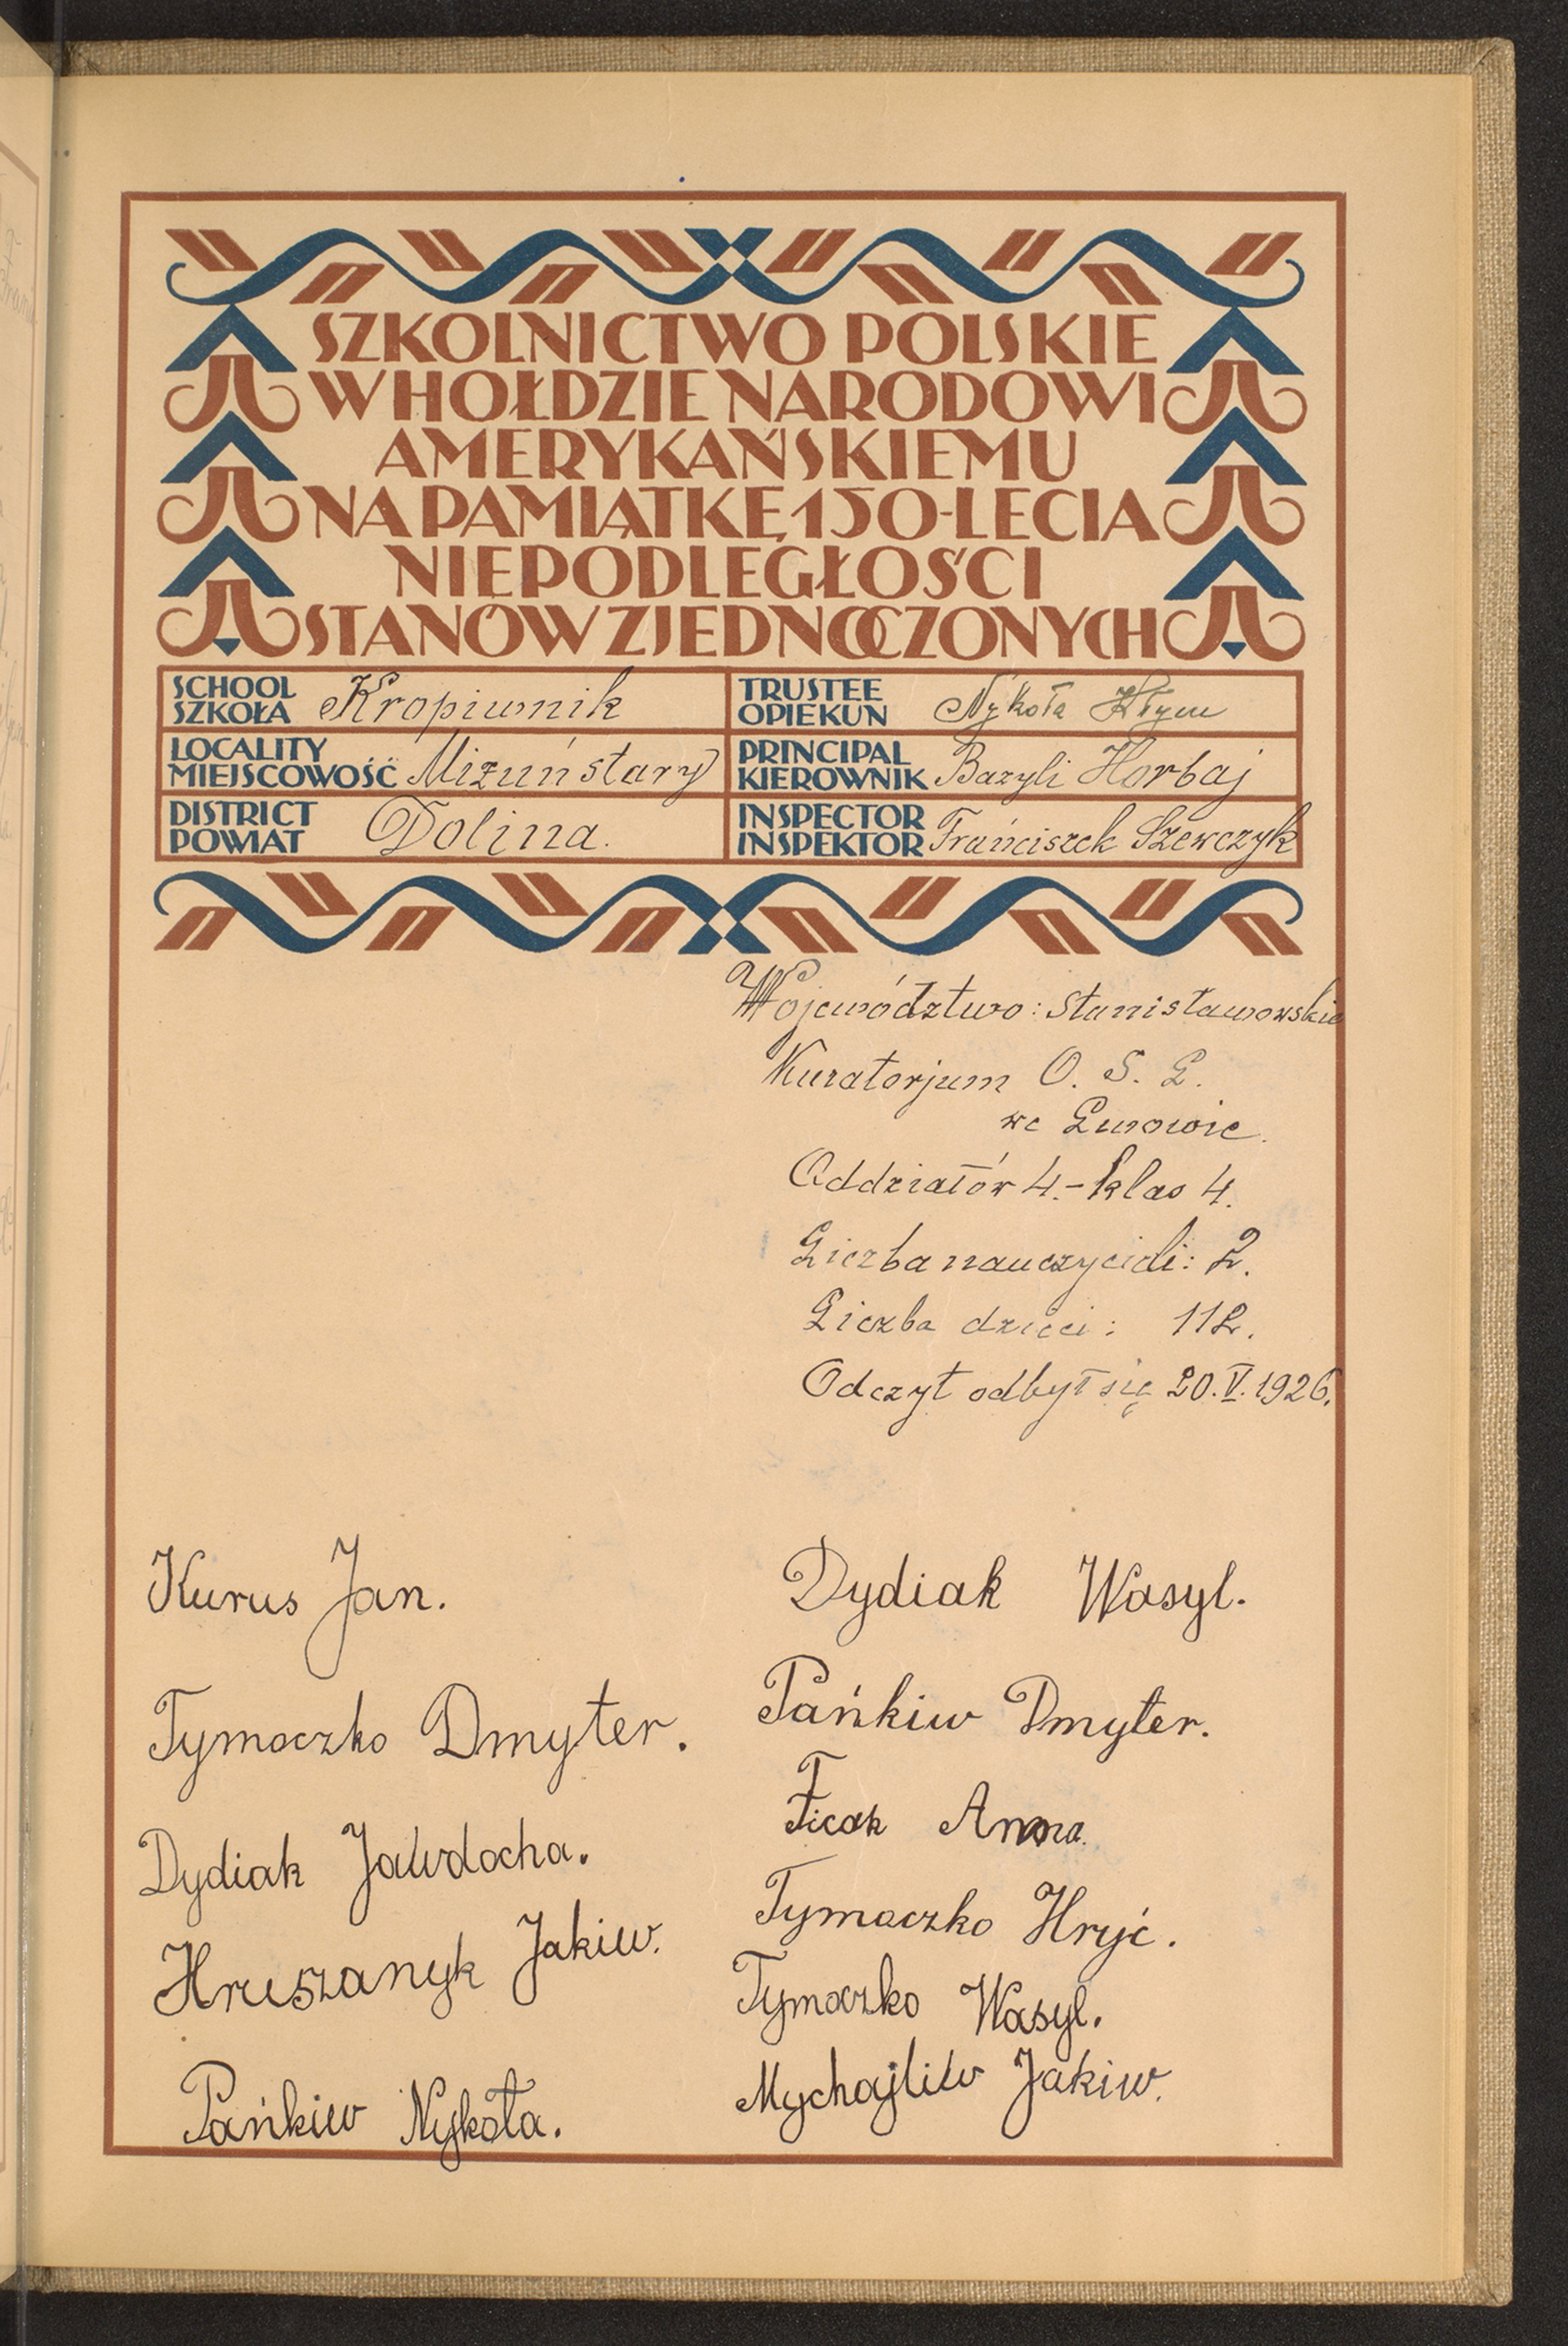 SZKOLNICTWO POLSKIE
W HOŁDZIE NARODOWI
AMERYKAŃSKIEMU
NA PAMIĄTKĘ 150-LECIA
NIEPODLEGŁOŚCI
STANÓW ZJEDNOCZONYCH
SCHOOL
SZKOŁA Kropiwnik
TRUSTEE
OPIEKUN Nykoła Kłym
LOCALITY
MIEJSCOWOŚĆ Mizuń stary
PRINCIPAL
KIEROWNIK Bazyli Horbaj
DISTRICT
POWIAT Dolina.
INSPECTOR
INSPEKTOR Franciszek Szewczyk
Województwo: Stanisławowskie
Kuratorjum O. S. L.
we Lwowie.
Oddziałów 4.- klas 4.
Liczba nauczycieli: 2.
Liczba dzieci: 112.
Odczyt odbył się 20.V.1926.
Kurus Jan.
Tymoczko Dmyter.
Dydiak Jawdocha.
Hruszanyk Jakiw.
Pańkiw Nykoła.
Dydiak Wasyl.
Pańkiw Dmyter.
Ficak Anna.
Tymoczko Hryć.
Tymoczko Wasyl.
Mychajliw Jakiw.